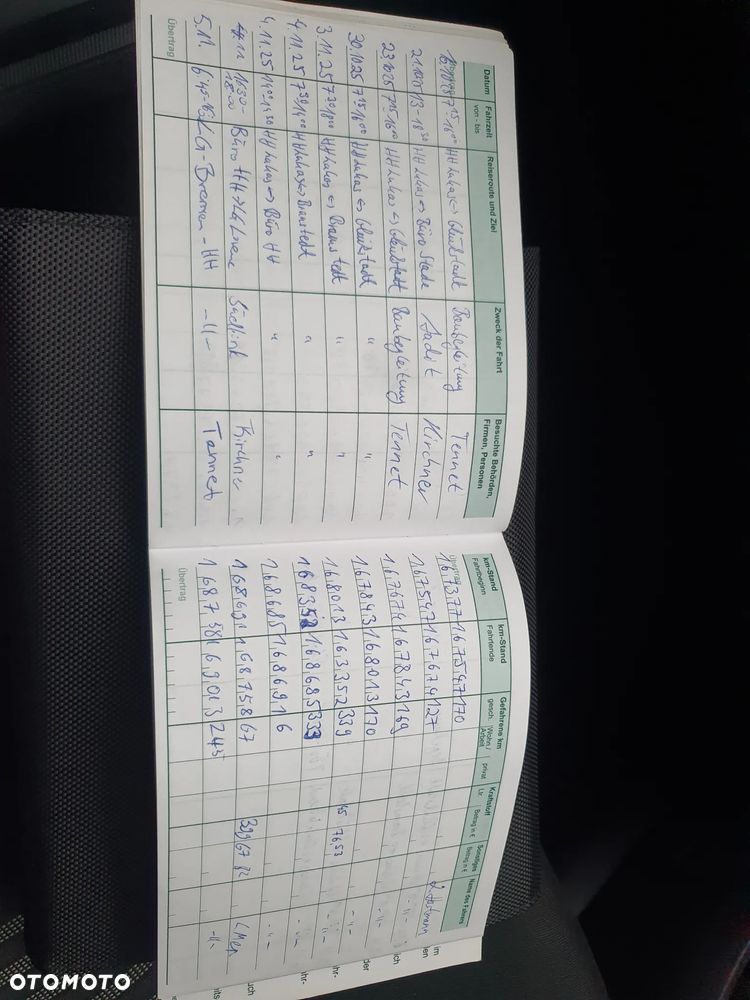 Datum Fahrzeit von - bis Reiseroute und Ziel Zweck der Fahrt Besuchte Behörden, Firmen, Personen
16.10.25 7:45-16:00 HH Lukas <-> Glückstadt Baubegleitung Tennet
21.10.25 13-18:30 HH Lukas <-> Büro Stade Kirchner
23.10.25 7:45-16:00 HH Lukas <-> Glückstadt Baubegleitung Tennet
30.10.25 7:45-16:00 HH Lukas <-> Glückstadt " "
3.11.25 7:30-18:00 HH Lukas <-> Bramstedt " "
4.11.25 7:30-14:00 HH Lukas <-> Bramstedt " "
4.11.25 14:00-14:30 HH Lukas <-> Büro HH " "
16:30-18:00 Büro HH -> Südlink Kirchner
5.11. - Bremen - HH -"- Tennet
Übertrag
km-Stand Fahrtbeginn km-Stand Fahrtende Gefahrene km gesch. Wohn/Arbeit privat Kraftstoff Ltr. Betrag in € Sonstiges Betrag in € Name des Fahrers
Übertrag
167377 167547 170
167547 167674 127 -"-
167674 167843 169 -"-
167843 168013 170 -"-
168013 163352 339 45 76,53 -"-
168352 168685 333 -"-
168685 168691 6 -"-
168691 168758 67
168738 169013 245 -"-
Übertrag
im
en
ich
der
hr-
hr-
uch
its
OTOMOTO